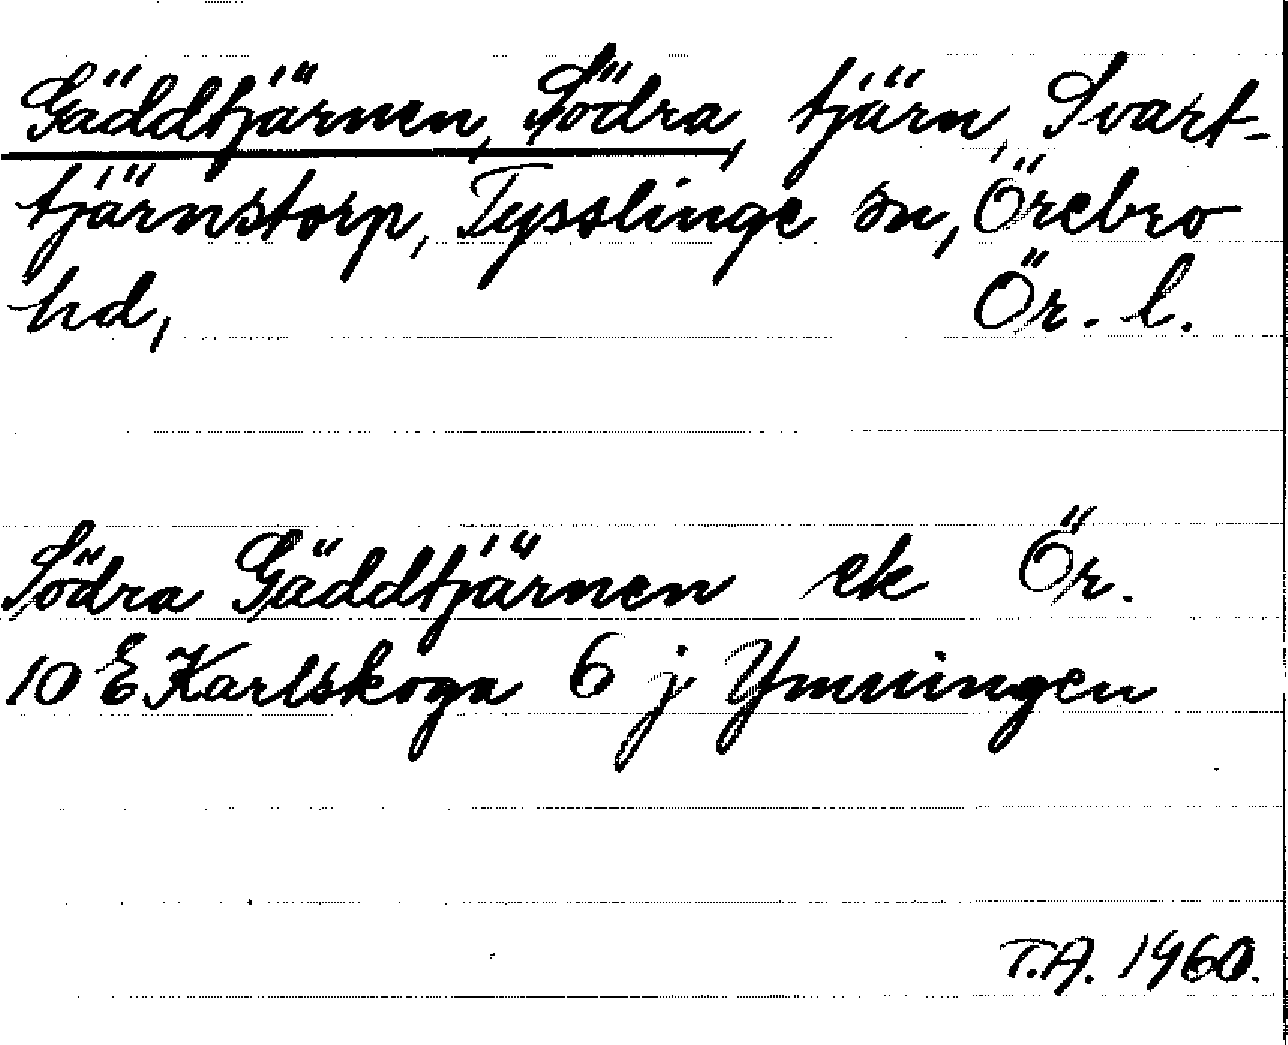 Gäddtjärnen, Södra, tjärn, Svart-
tjärnstorp, Tysslinge sn, Örebro
hd, Ör. l.
Södra Gäddtjärnen ek Ör.
10 E Karlskoga 6 j Ymningen
T.A. 1960.